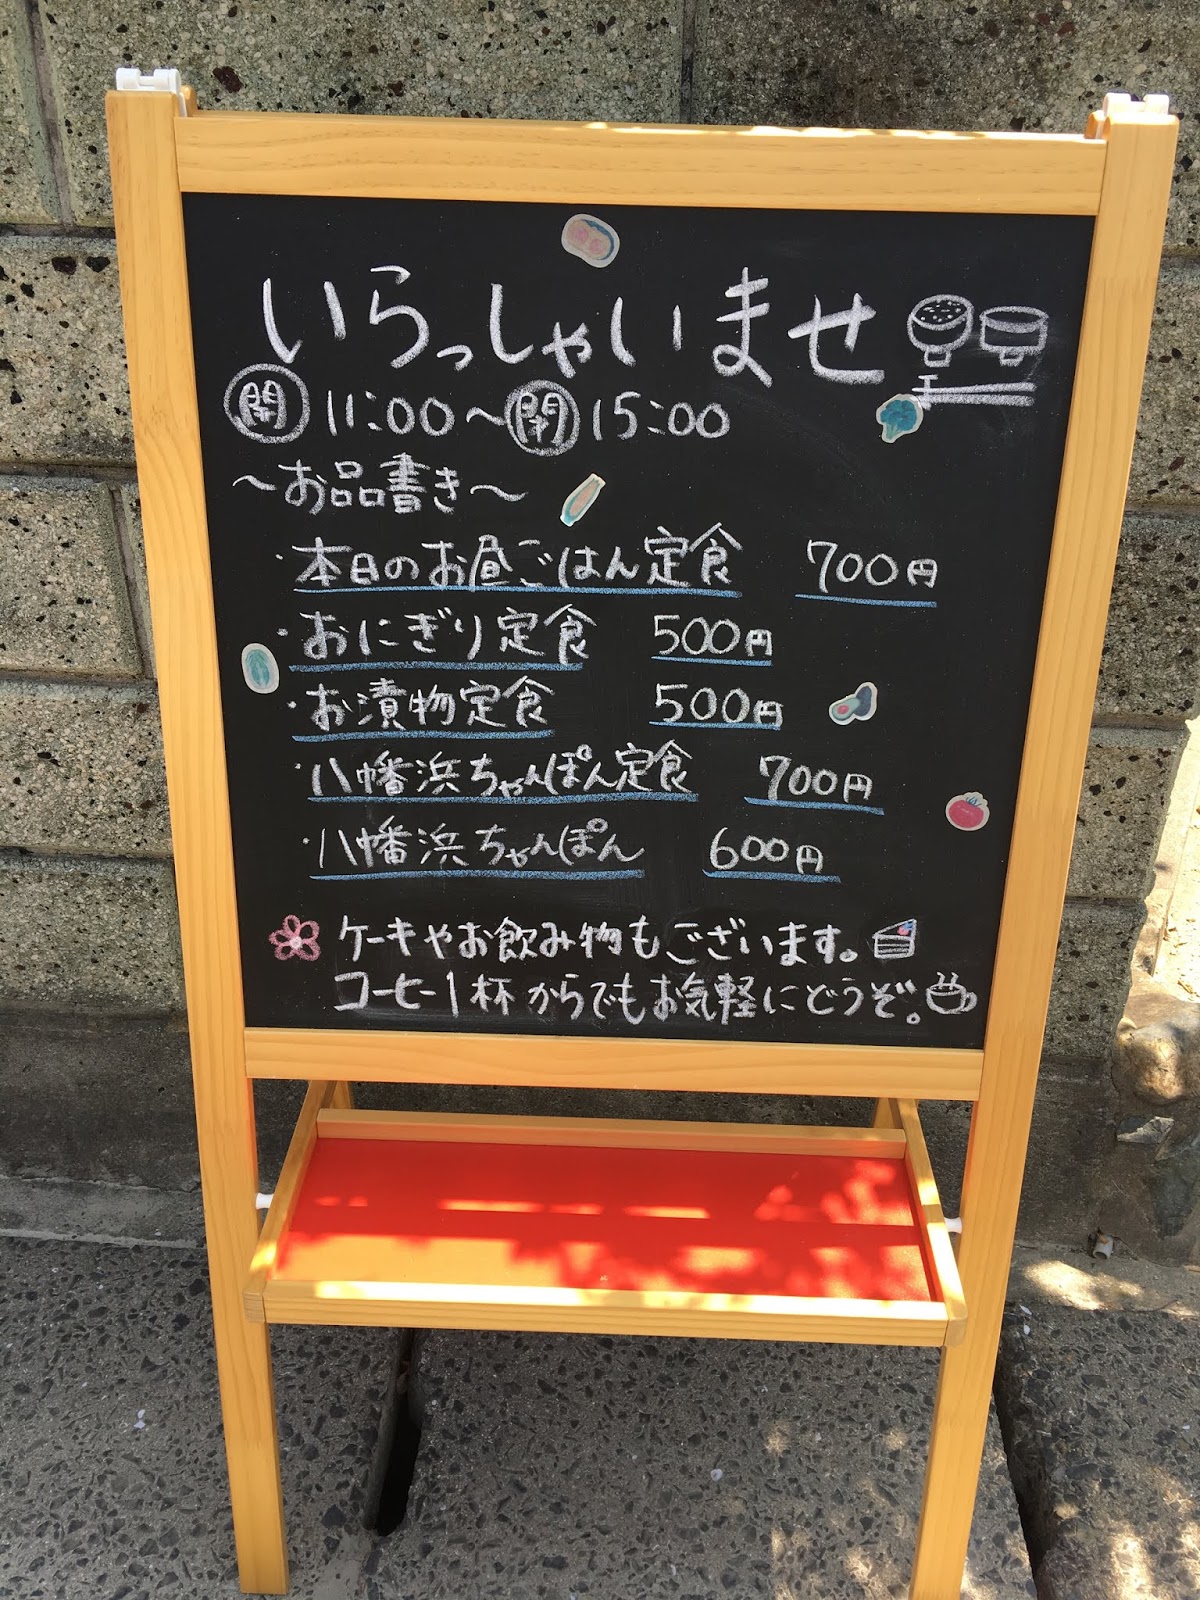 いらっしゃいませ
開 11:00〜閉 15:00
〜お品書き〜
・本日のお昼ごはん定食 700円
・おにぎり定食 500円
・お漬物定食 500円
・八幡浜ちゃんぽん定食 700円
・八幡浜ちゃんぽん 600円
ケーキやお飲み物もございます。
コーヒー1杯からでもお気軽にどうぞ。